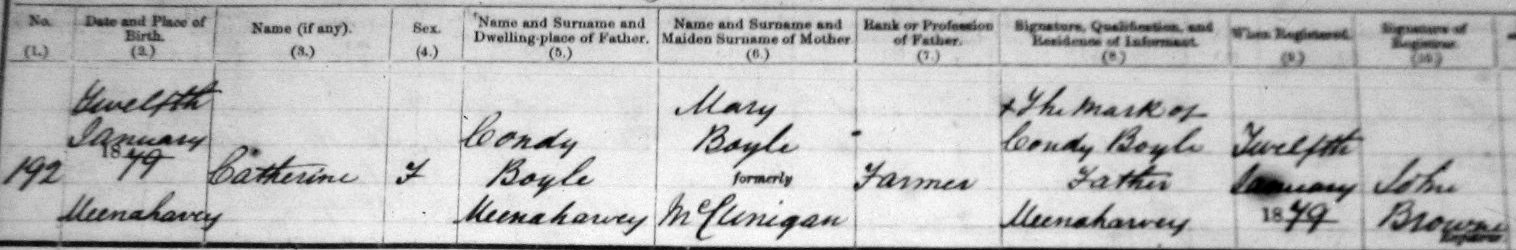 No. (1.)
Date and Place of Birth. (2.)
Name (if any). (3.)
Sex. (4.)
Name and Surname and Dwelling-place of Father. (5.)
Name and Surname and Maiden Surname of Mother (6.)
Rank or Profession of Father. (7.)
Signature, Qualification, and Residence of Informant. (8.)
When Registered. (9.)
Signature of Registrar. (10.)
192
Twelfth
January
1879
Meenaharvey
Catherine
F
Condy
Boyle
Meenaharvey
Mary
Boyle
formerly
McClinigan
Farmer
+ The mark of
Condy Boyle
Father
Meenaharvey
Twelfth
January
1879
John
Browne
Registrar.